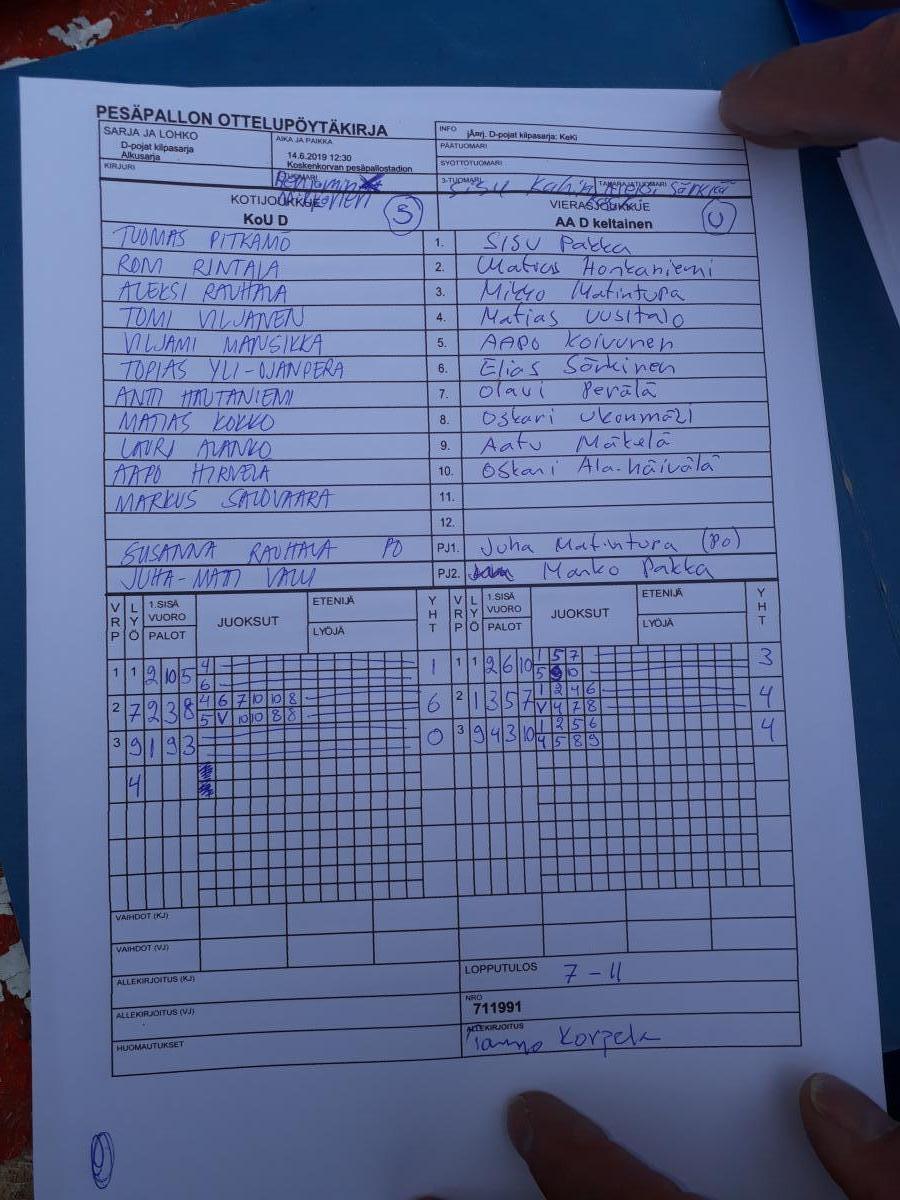 PESÄPALLON OTTELUPÖYTÄKIRJA
SARJA JA LOHKO
D-pojat kilpasarja
Alkusarja
AIKA JA PAIKKA
14.6.2019 12:30
Koskenkorvan pesäpallostadion
INFO
jÄnrj. D-pojat kilpasarja: KeKi
PÄÄTUOMARI
SYÖTTÖTUOMARI
KIRJURI
2-TUOMARI
3-TUOMARI
Sisu
TAKARAJATUOMARI
KOTIJOUKKUE
KoU D
S
VIERASJOUKKUE
AA D keltainen
U
TUOMAS PITKÄMÖ 1. SISU Pakka
RONI RINTALA 2. Matias Honkaniemi
ALEKSI RAUHALA 3. Mikko Matintupa
TOMI VILJANEN 4. Matias Uusitalo
VILJAMI MANSIKKA 5. AAPO Koivunen
TOPIAS YLI-OJANPERÄ 6. Elias Särkinen
ANTTI HAUTANIEMI 7. Olavi Perälä
MATIAS KOKKO 8. Oskari Ukonmäki
LAURI ALANKO 9. Aatu Mäkelä
AAPO HIRVELÄ 10. Oskari Ala-häivälä
MARKUS SALOVAARA 11.
12.
SUSANNA RAUHALA PO PJ1. Juha Matintupa (PO)
JUHA-MATTI PJ2. Marko Pakka
VRP LYÖ 1.SISÄ VUORO PALOT JUOKSUT ETENIJÄ LYÖJÄ YHT VRP LYÖ 1.SISÄ VUORO PALOT JUOKSUT ETENIJÄ LYÖJÄ YHT
1 1 2 10 5 4 1 1 1 2 6 10 1 5 7 3
6 5 9 10
2 7 2 3 8 4 6 7 10 10 8 6 2 1 3 5 7 1 2 4 6 4
5 V 10 10 8 8 V 4 7 8
3 9 1 9 3 0 3 9 4 3 10 1 2 5 6 4
4 5 8 9
4
VAIHDOT (KJ)
VAIHDOT (VJ)
ALLEKIRJOITUS (KJ)
LOPPUTULOS 7-11
ALLEKIRJOITUS (VJ)
NRO
711991
HUOMAUTUKSET
ALLEKIRJOITUS